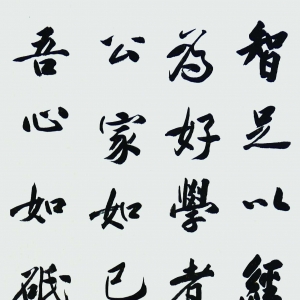 智足以經
為好學者
公家如已
吾心如砥